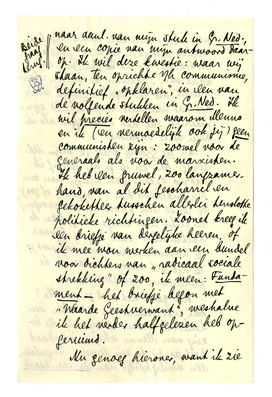 Beide
graag
terug!
naar aanl. van mijn stuk in Gr. Ned.,
en een copie van mijn antwoord daar-
op. Ik wil deze kwestie: waar wij
staan, ten opzichte v/h communisme,
definitief „opklaren”, in een van
de volgende stukken in Gr. Ned. Ik
wil precies vertellen waarom Menno
en ik (en vermoedelijk ook jij) geen
communisten zijn: zoowel voor de
generaals als voor de marxisten.
Ik heb een gruwel, zoo langzamer-
hand, van al dit gescharrel en
gekoketteer tusschen allerlei
politieke richtingen. Zoonet kreeg ik
een briefje van dergelijke heeren, of
ik mee wou werken aan een bundel
voor dichters van „radicaal sociale
strekking” of zoo, ik meen: Funda-
ment — het briefje begon met
„Waarde Geestverwant”, weshalve
ik het verder halfgelezen heb op-
geruimd.
Nu genoeg hierover, want ik zie